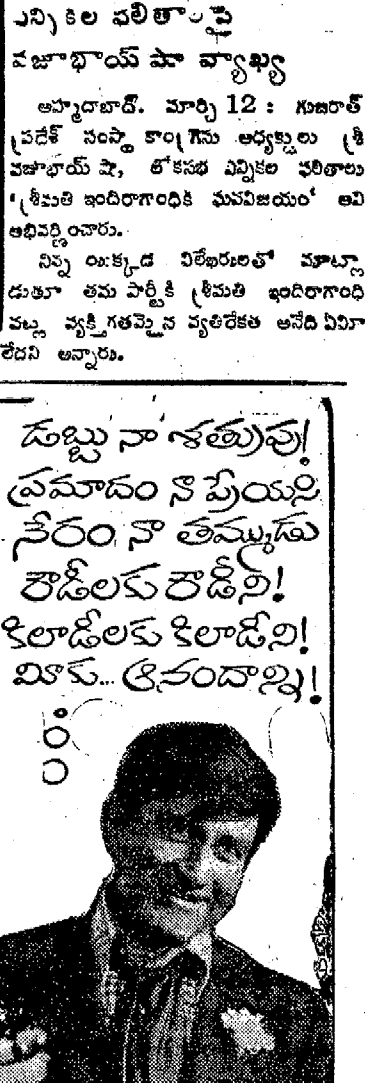 ఎన్నికల ఫలితాలపై
వజూభాయ్ షా వ్యాఖ్య
అహ్మదాబాద్. మార్చి 12 : గుజరాత్
ప్రదేశ్ సంస్థా కాంగ్రెసు అధ్యక్షులు శ్రీ
వజూభాయ్ షా, లోకసభ ఎన్నికల ఫలితాలు
'శ్రీమతి ఇందిరాగాంధికి ఘనవిజయం' అని
అభివర్ణించారు.
నిన్న యిక్కడ విలేఖరులతో మాట్లా
డుతూ తమ పార్టీకి శ్రీమతి ఇందిరాగాంధి
పట్ల వ్యక్తిగతమైన వ్యతిరేకత అనేది ఏమీ
లేదని అన్నారు.
డబ్బు నా శత్రువు!
ప్రమాదం నా ప్రేయసి
నేరం నా తమ్ముడు
రౌడీలకు రౌడీని!
కిలాడీలకు కిలాడీని!
మీకు... ఆనందాన్ని!